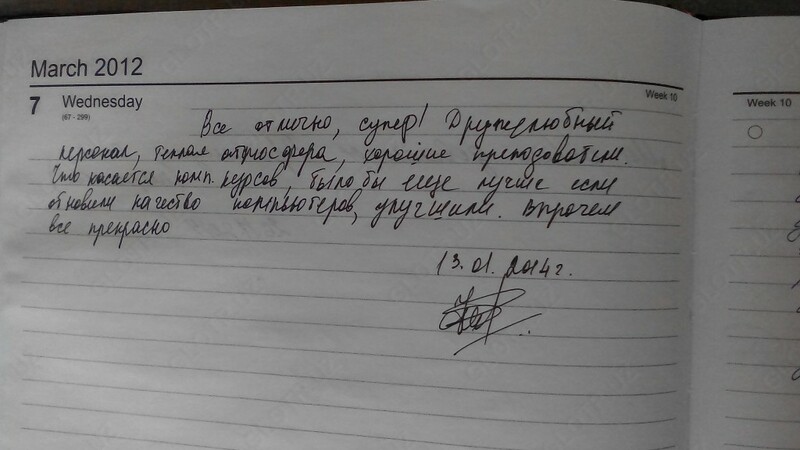 March 2012
7 Wednesday
(67 - 299)
Week 10
Week 10
Все отлично, супер! Дружелюбный
персонал, теплая атмосфера, хорошие преподователи.
Что касается комп. курсов, было бы еще лучше если
обновили качество компьютеров, улучшили. Впрочем
все прекрасно
13.01.2014г.